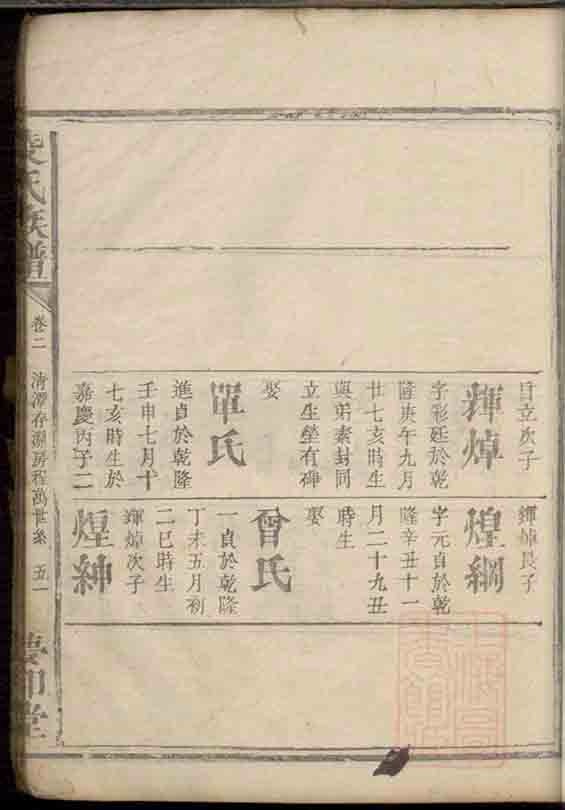 日立次子
輝焯
字彩廷於乾
隆庚午九月
廿七亥時生
與弟素封同
立生塋有碑
娶
單氏
進貞於乾隆
壬申七月十
七亥時生於
嘉慶丙子二
輝焯長子
煌綱
字元自於乾
隆辛丑十一
月二十九丑
時生
娶
曾氏
一貞於乾隆
丁未五月初
二巳時生
輝焯次子
煌紳
氏族譜
卷二
清潭存淵房程萬世系
五一